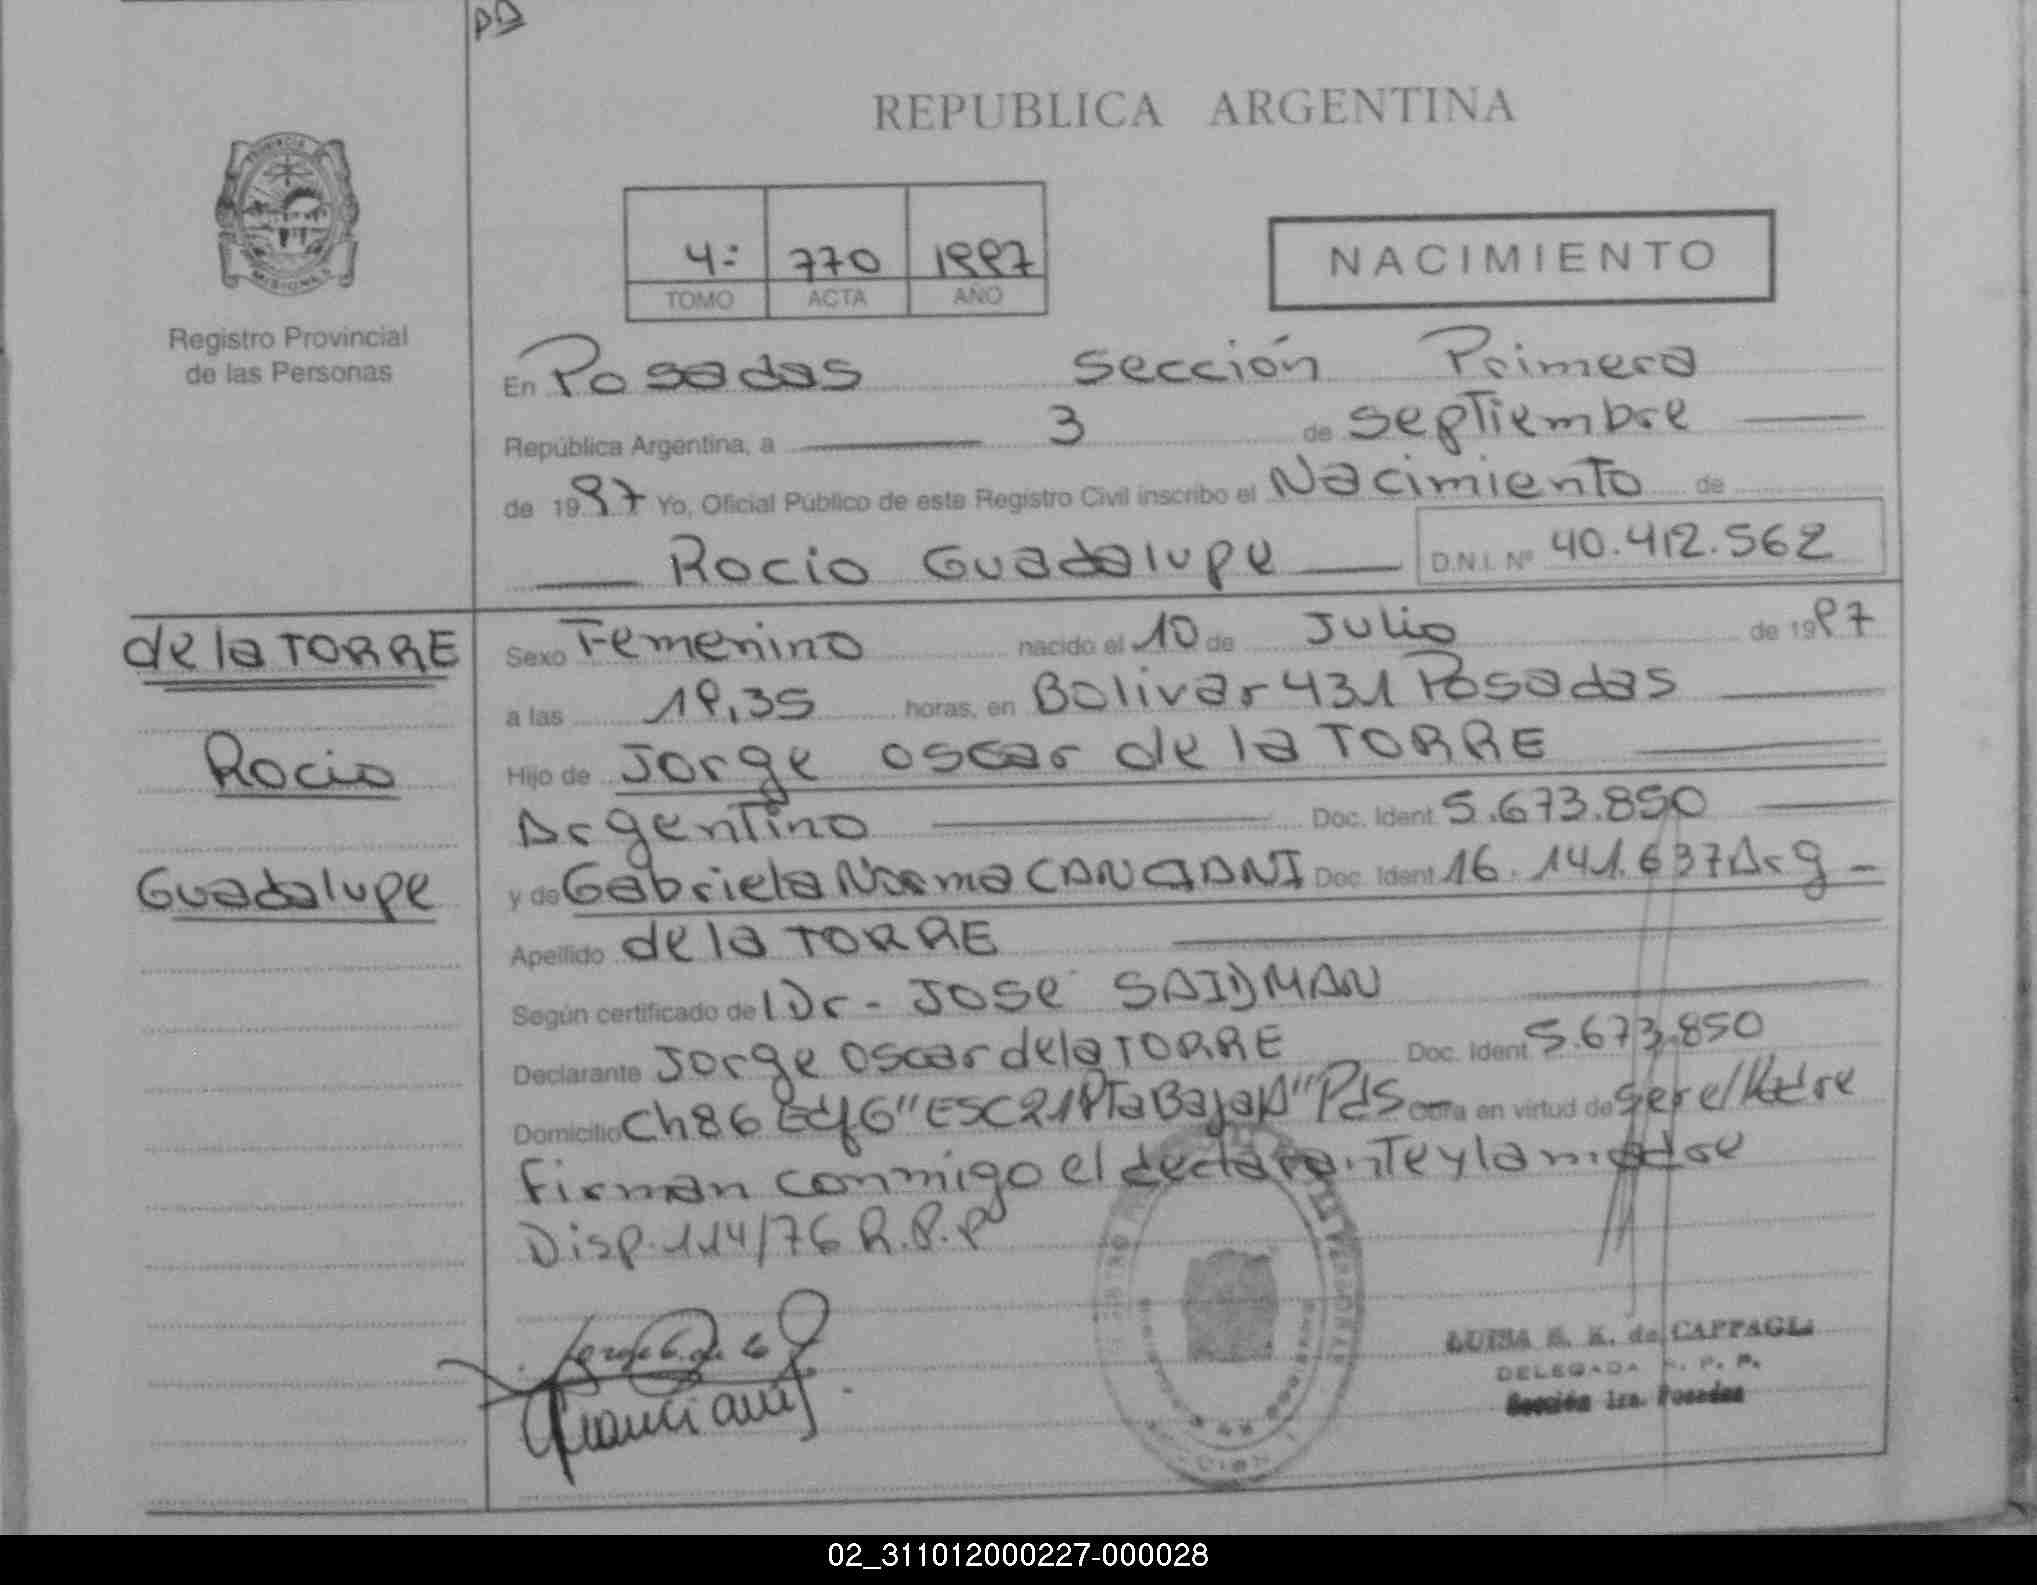 REPUBLICA ARGENTINA
4:
770
1997
TOMO
ACTA
AÑO
NACIMIENTO
Registro Provincial
de las Personas
En Posadas sección Primera
República Argentina, a 3 de septiembre
de 1997 Yo, Oficial Público de este Registro Civil inscribo el Nacimiento de
Rocio Guadalupe
D.N.I. Nº 40.412.562
de la TORRE
Rocio
Guadalupe
Sexo Femenino nacido el 10 de Julio de 1997
a las 19,35 horas, en Bolivar 431 Posadas
Hijo de Jorge oscar de la TORRE
Argentino Doc. Ident. 5.673.850
y de Gabriela Norma CANCIANI Doc. Ident 16.141.637 Arg -
Apellido de la TORRE
Según certificado de Dr - JOSE SAIDMAN
Declarante Jorge oscar de la TORRE Doc. Ident 5.673.850
Domicilio Ch 86 Edf 6 "ESC 21 PTa Baja A" Pds - Obra en virtud de ser el Padre
Firman conmigo el declarante y la madre
Disp. 114/76 R.P.P
LUISA E. K. de CAPPAGLI
DELEGADA R. P. P.
Sección 1ra. Posadas
02_311012000227-000028